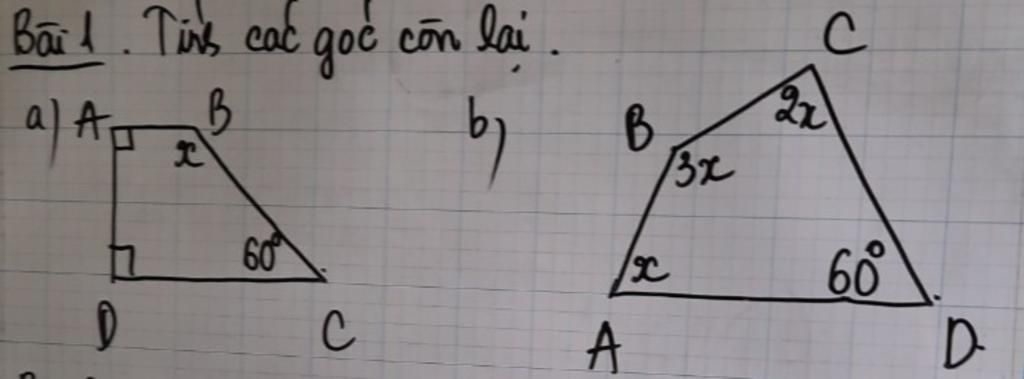 Bài 1. Tính các góc còn lại.
a) A B
x
60°
D C
b) B C
2x
3x
x 60°
A D